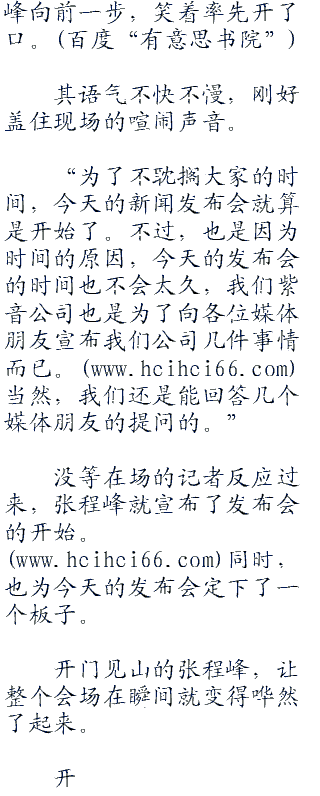 峰向前一步，笑着率先开了
口。(百度“有意思书院”)
其语气不快不漫，刚好
盖住现场的喧闹声音。
“为了不耽搁大家的时
间，今天的新闻发布会就算
是开始了。不过，也是因为
时间的原因，今天的发布会
的时间也不会太久，我们紫
音公司也是为了向各位媒体
朋友宣布我们公司几件事情
而已。(www.hcihci66.com)
当然，我们还是能回答几个
媒体朋友的提问的。”
没等在场的记者反应过
来，张程峰就宣布了发布会
的开始。
(www.hcihci66.com)同时，
也为今天的发布会定下了一
个板子。
开门见山的张程峰，让
整个会场在瞬间就变得哗然
了起来。
开